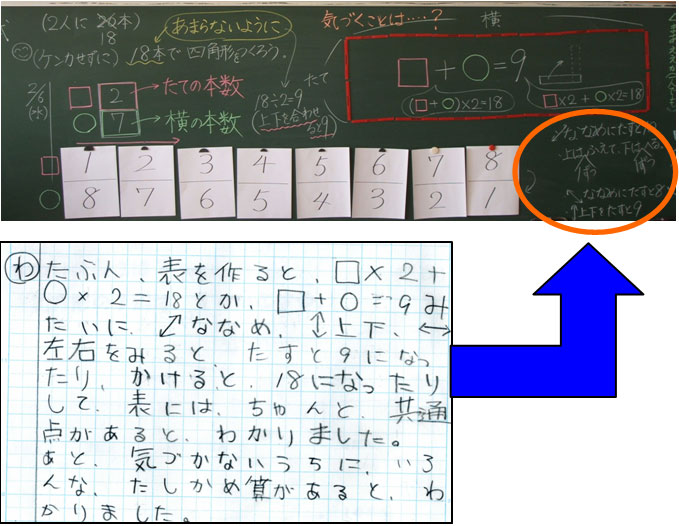 (2人に 26本)
18
あまらないように
(ケンカせずに) 18本で四角形をつくろう。
気づくことは……?
横
たて
□+○=9
(□+○)×2=18
□×2+○×2=18
2/6
(水)
□ 2 →たての本数
○ 7 →横の本数
18÷2=9
(上下を合わせると9)
□ 1 2 3 4 5 6 7 8
○ 8 7 6 5 4 3 2 1
ななめにたすと10
・上はふえて、下はへる。
ななめにたすと8
↑上下をたすと9
わ たぶん、表を作ると、□×2+
○×2=18とか、□+○=9み
たいに、↗ななめ、↕上下、↔
左右をみると、たすと9になっ
たり、かけると、18になったり
して、表には、ちゃんと、共通
点があると、わかりました。
あと、気づかないうちに、いろ
んな、たしかめ算があると、わ
かりました。